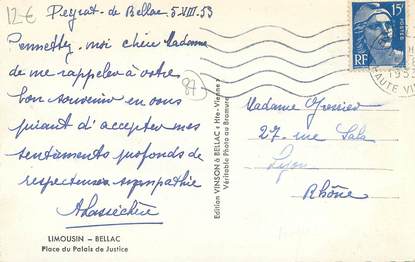 12€
Peyrat-de Bellac 5-VIII-53
Permettez-moi chère Madame
de me rappeler à votre
bon souvenir en vous
priant d'accepter mes
sentiments profonds de
respectueuse sympathie
87
15F
POSTES
RF
HAUTE VI
Edition VINSON à BELLAC « Hte-Vienne »
Véritable Photo au Bromure
Madame
27 rue Sala
Lyon
Rhône
LIMOUSIN – BELLAC
Place du Palais de Justice